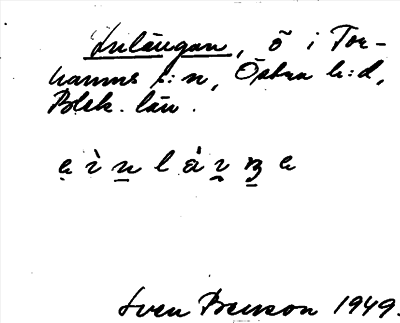 Inlängan, ö i Tor-
hamns s:n, Östra h:d,
Blek. län.
Sven Benson 1949.